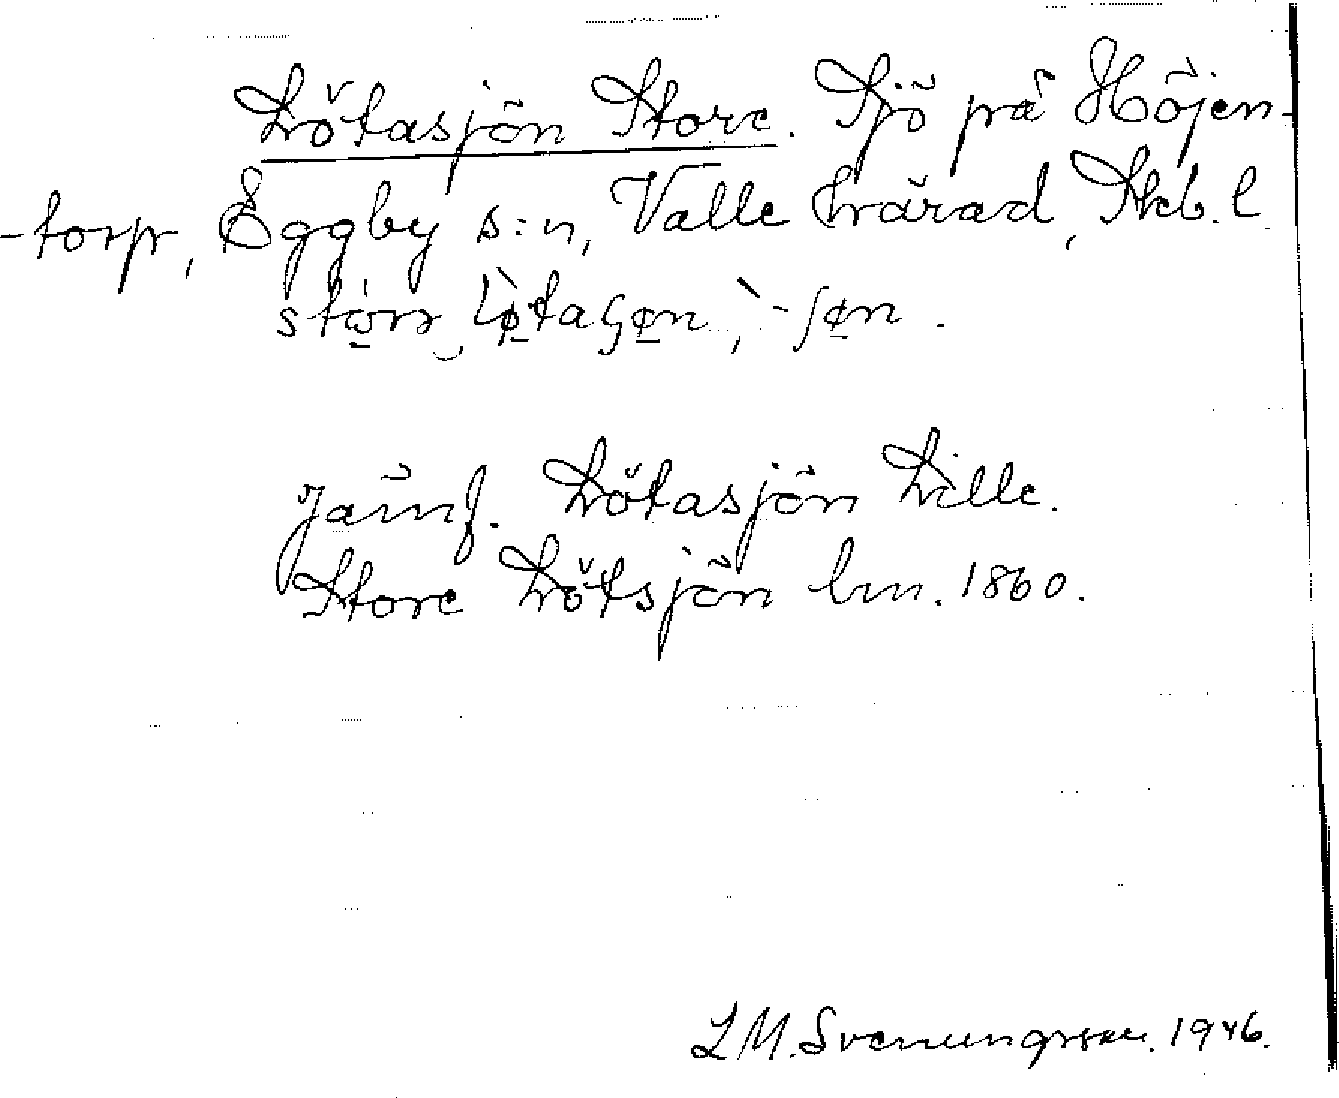 Lötasjön Store. Sjö på Höjen-
-torp, Eggby s:n, Valle härad, Skb. l
Jämf. Lötasjön Lille.
Store Lötsjön lm. 1860.
L M. Svenungsson. 1946.